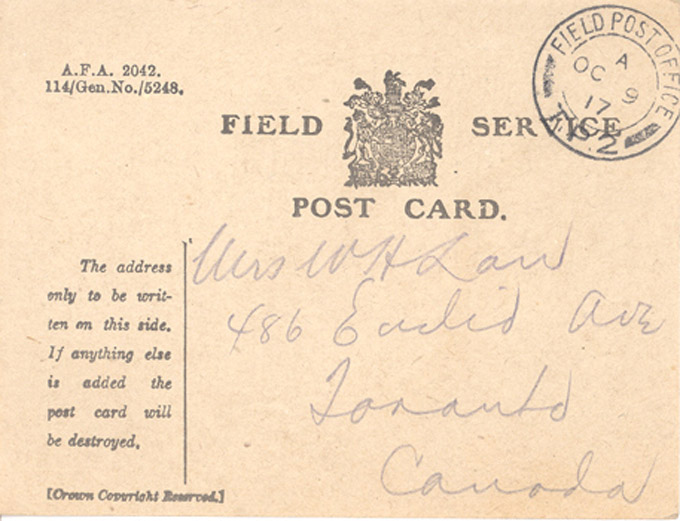 A.F.A. 2042.
114/Gen.No./5248.
FIELD SERVICE
POST CARD.
FIELD POST OFFICE
A
OC 9
17
The address
only to be writ-
ten on this side.
If anything else
is added the
post card will
be destroyed.
[Crown Copyright Reserved.]
Mrs W H Law
486 Euclid Ave
Toronto
Canada